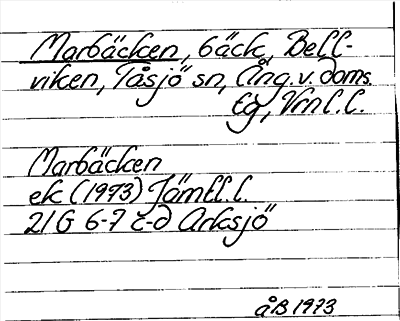 Marbäcken, bäck, Bell-
viken, Tåsjö sn, Ång.v. doms.
tg, Vrnl. l.
Marbäcken
ek (1973) Jämtl. l.
21G 6-7 c-d Arksjö
åB 1973